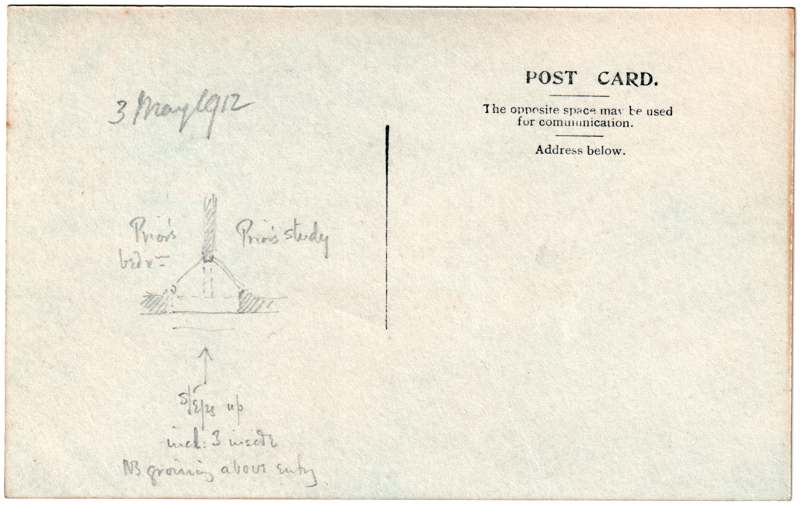 3 May 1912
Prior's
bedrm
Prior's study
steps up
incl: 3 inside
NB groining above entry
POST CARD.
The opposite space may be used
for communication.
Address below.